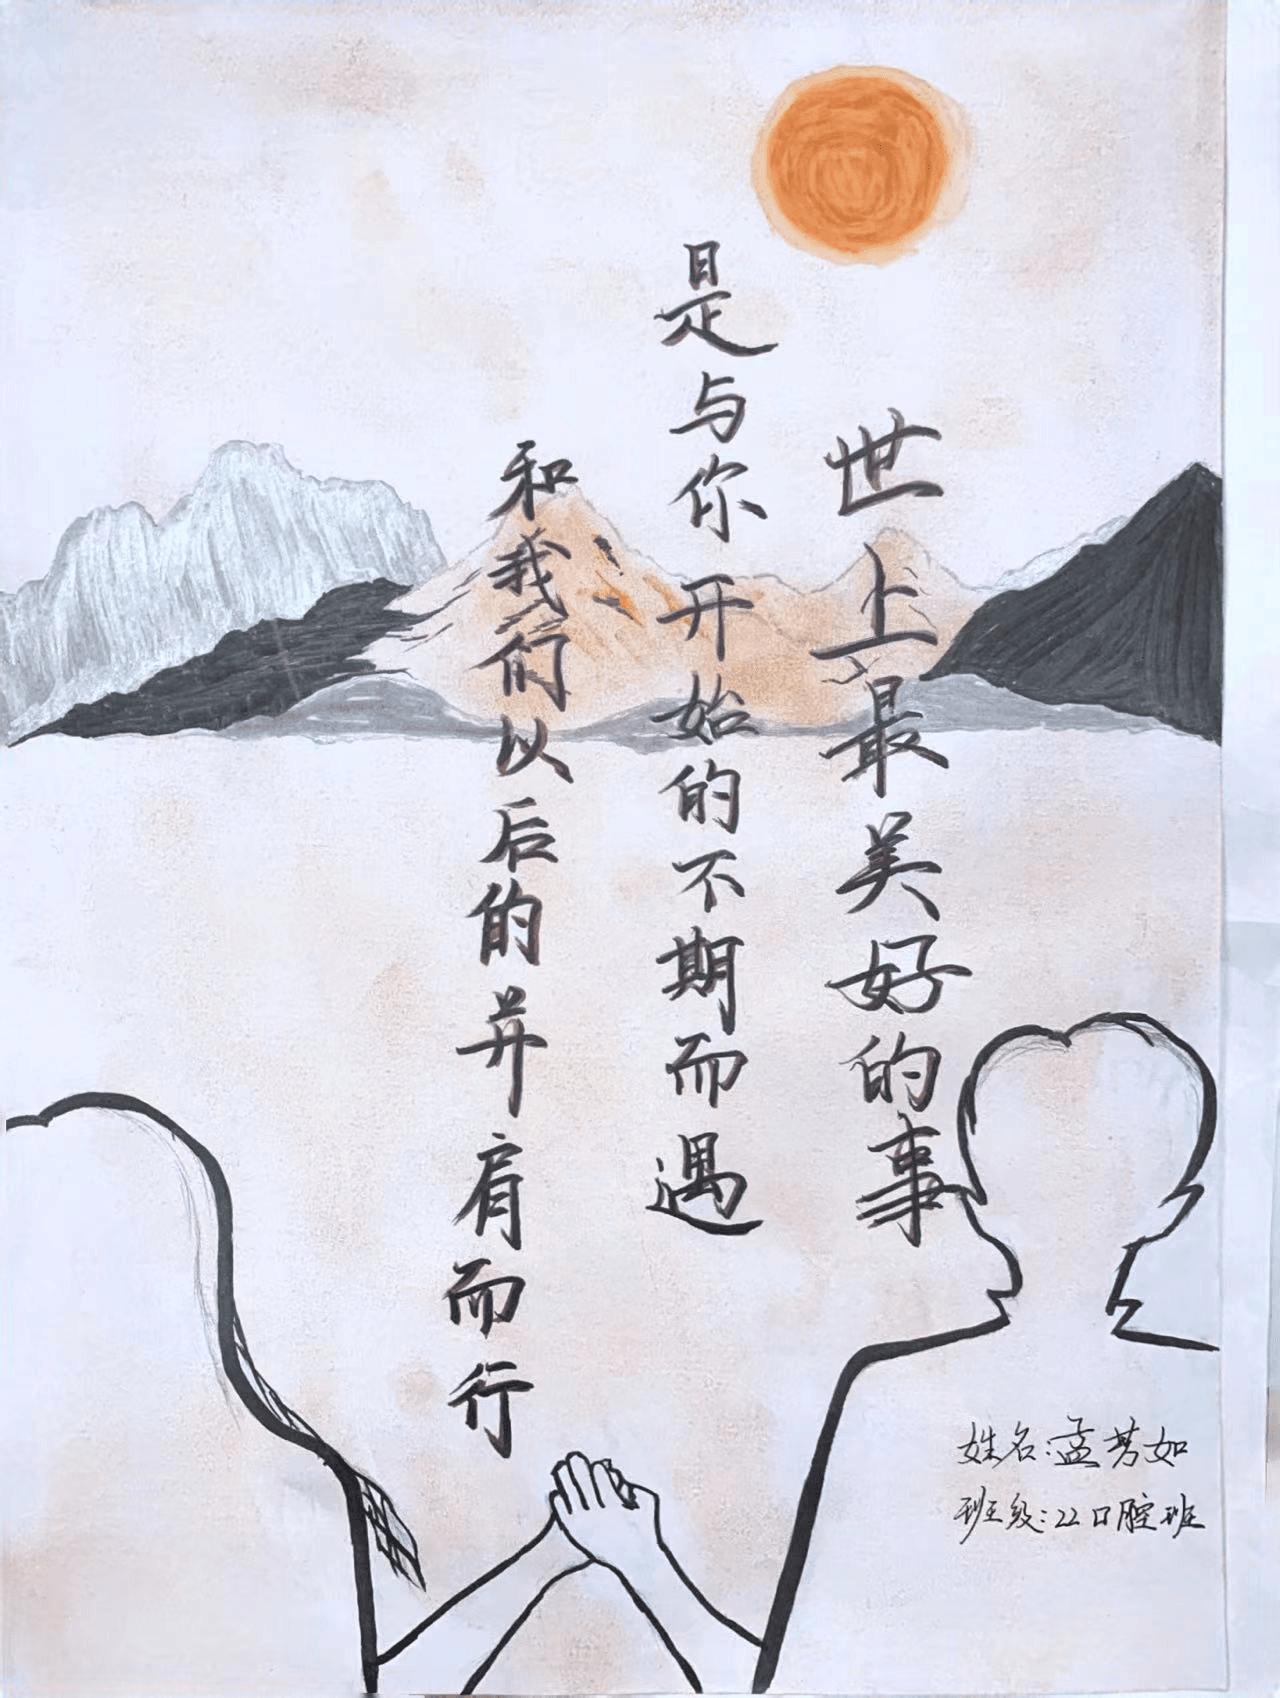 世上最美好的事
是与你开始的不期而遇
和我们以后的并肩而行
姓名:孟芳如
班级:22口腔班